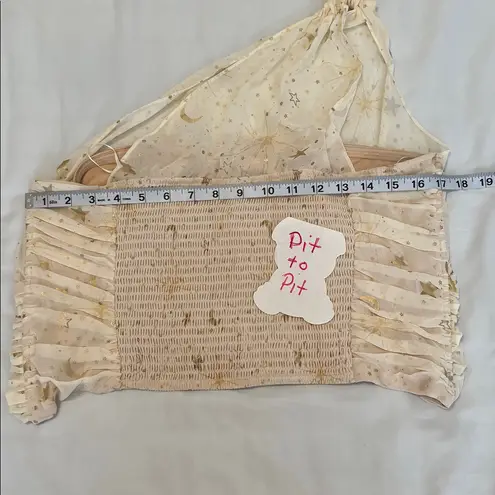 1 2 3 4 5 6 7 8 9 10 11 12 13 14 15 16 17 18 19
Pit
to
Pit